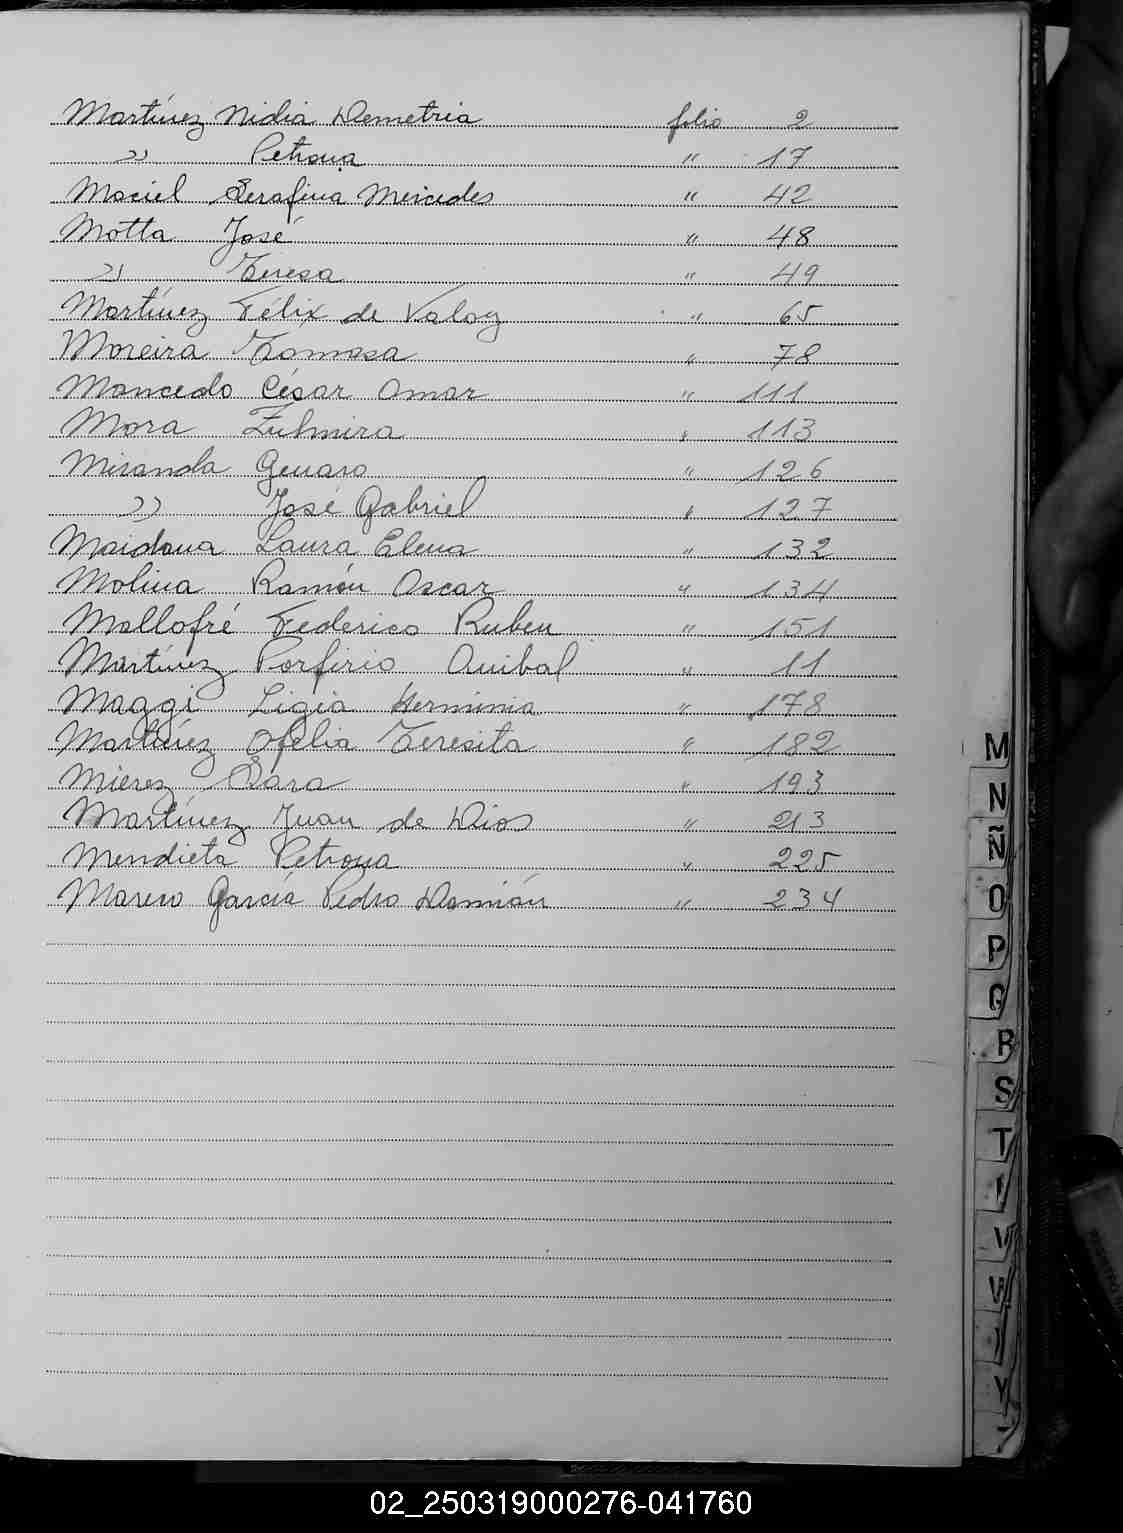 Martínez Nidia Demetria folio 2
" Petrona " 17
Maciel Serafina Mercedes " 42
Motta José " 48
" Teresa " 49
Martínez Félix de Valoy " 65
Moreira Tomasa " 78
Mancedo César Omar " 111
Mora Zulmira " 113
Miranda Genaro " 126
" José Gabriel " 127
Maidana Laura Elena " 132
Molina Ramón Oscar " 134
Mallofré Federico Ruben " 151
Martínez Porfirio Anibal " 11
Maggi Ligia Herminia " 178
Martínez Ofelia Teresita " 182
Mierez Sara " 193
Martínez Juan de Dios " 213
Mendieta Petrona " 225
García Pedro Damián " 234
M
N
Ñ
O
P
Q
R
S
T
V
W
Y
02_250319000276-041760